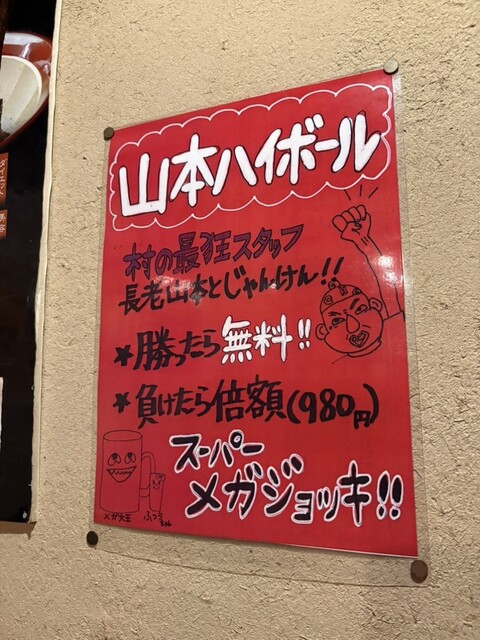 山本ハイボール
村の最狂スタッフ
長老山本とじゃんけん!!
★勝ったら無料!!
★負けたら倍額(980円)
スーパー
メガジョッキ!!
メガ大王
ダイエット